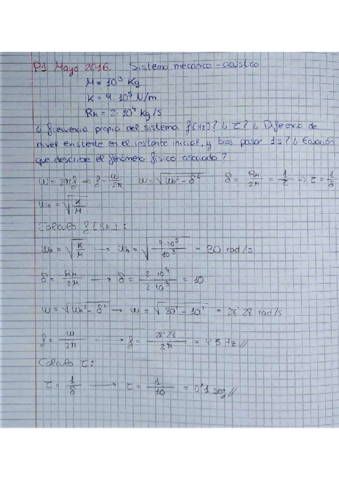 P1 Mayo 2016. Sistema mecánico - acústico
M = 10³ Kg
K = 9·10⁵ N/m
Rm = 2·10⁴ kg/s
¿ Frecuencia propia del sistema f(Hz)? ¿ τ? ¿ Diferencia de
nivel existente en el instante inicial, y tras pasar 1s? ¿ Ecuación
que describe el fenómeno físico asociado?
ω = 2πf → f = ω/2π ω = √(ω₀² - δ²) δ = Rm/2M = 1/τ → τ = 1/δ
ω₀ = √(K/M)
Cálculo f (Hz):
ω₀ = √(K/M) → ω₀ = √(9·10⁵/10³) = 30 rad/s
δ = Rm/2M → δ = 2·10⁴/2·10³ = 10
ω = √(ω₀² - δ²) → ω = √(30² - 10²) = 28'28 rad/s
f = ω/2π → f = 28'28/2π = 4'5 Hz //
Cálculo τ:
τ = 1/δ → τ = 1/10 = 0'1 seg //